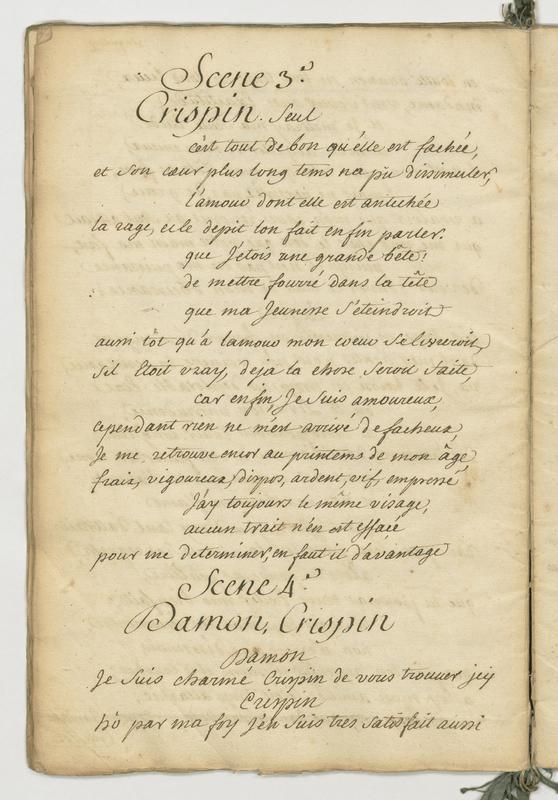 Scene 3.e
Crispin. Seul
c'est tout de bon qu'elle est fachée,
et son cœur plus long tems na pû dissimuler,
l'amour dont elle est antichée
la rage, et le depit lon fait enfin parler.
que j'étois une grande bête!
de mettre fourré dans la tête
que ma jeunesse s'éteindroit
aussi tôt qu'a lamour mon cœur se livreroit,
s'il Etoit vray, deja la chose seroit faite,
car enfin, Je suis amoureux,
cependant rien ne m'est arrivé de facheux,
Je me retrouve encor au printems de mon âge,
frais, vigoureux, dispos, ardent, vif, empressé
J'ay toujours le même visage,
aucun trait n'en est effacé
pour me determiner, en faut il d'avantage
Scene 4.e
Damon, Crispin
Damon
Je suis charmé Crispin de vous trouver jcy
Crispin
hò par ma foy j'en suis tres satisfait aussi